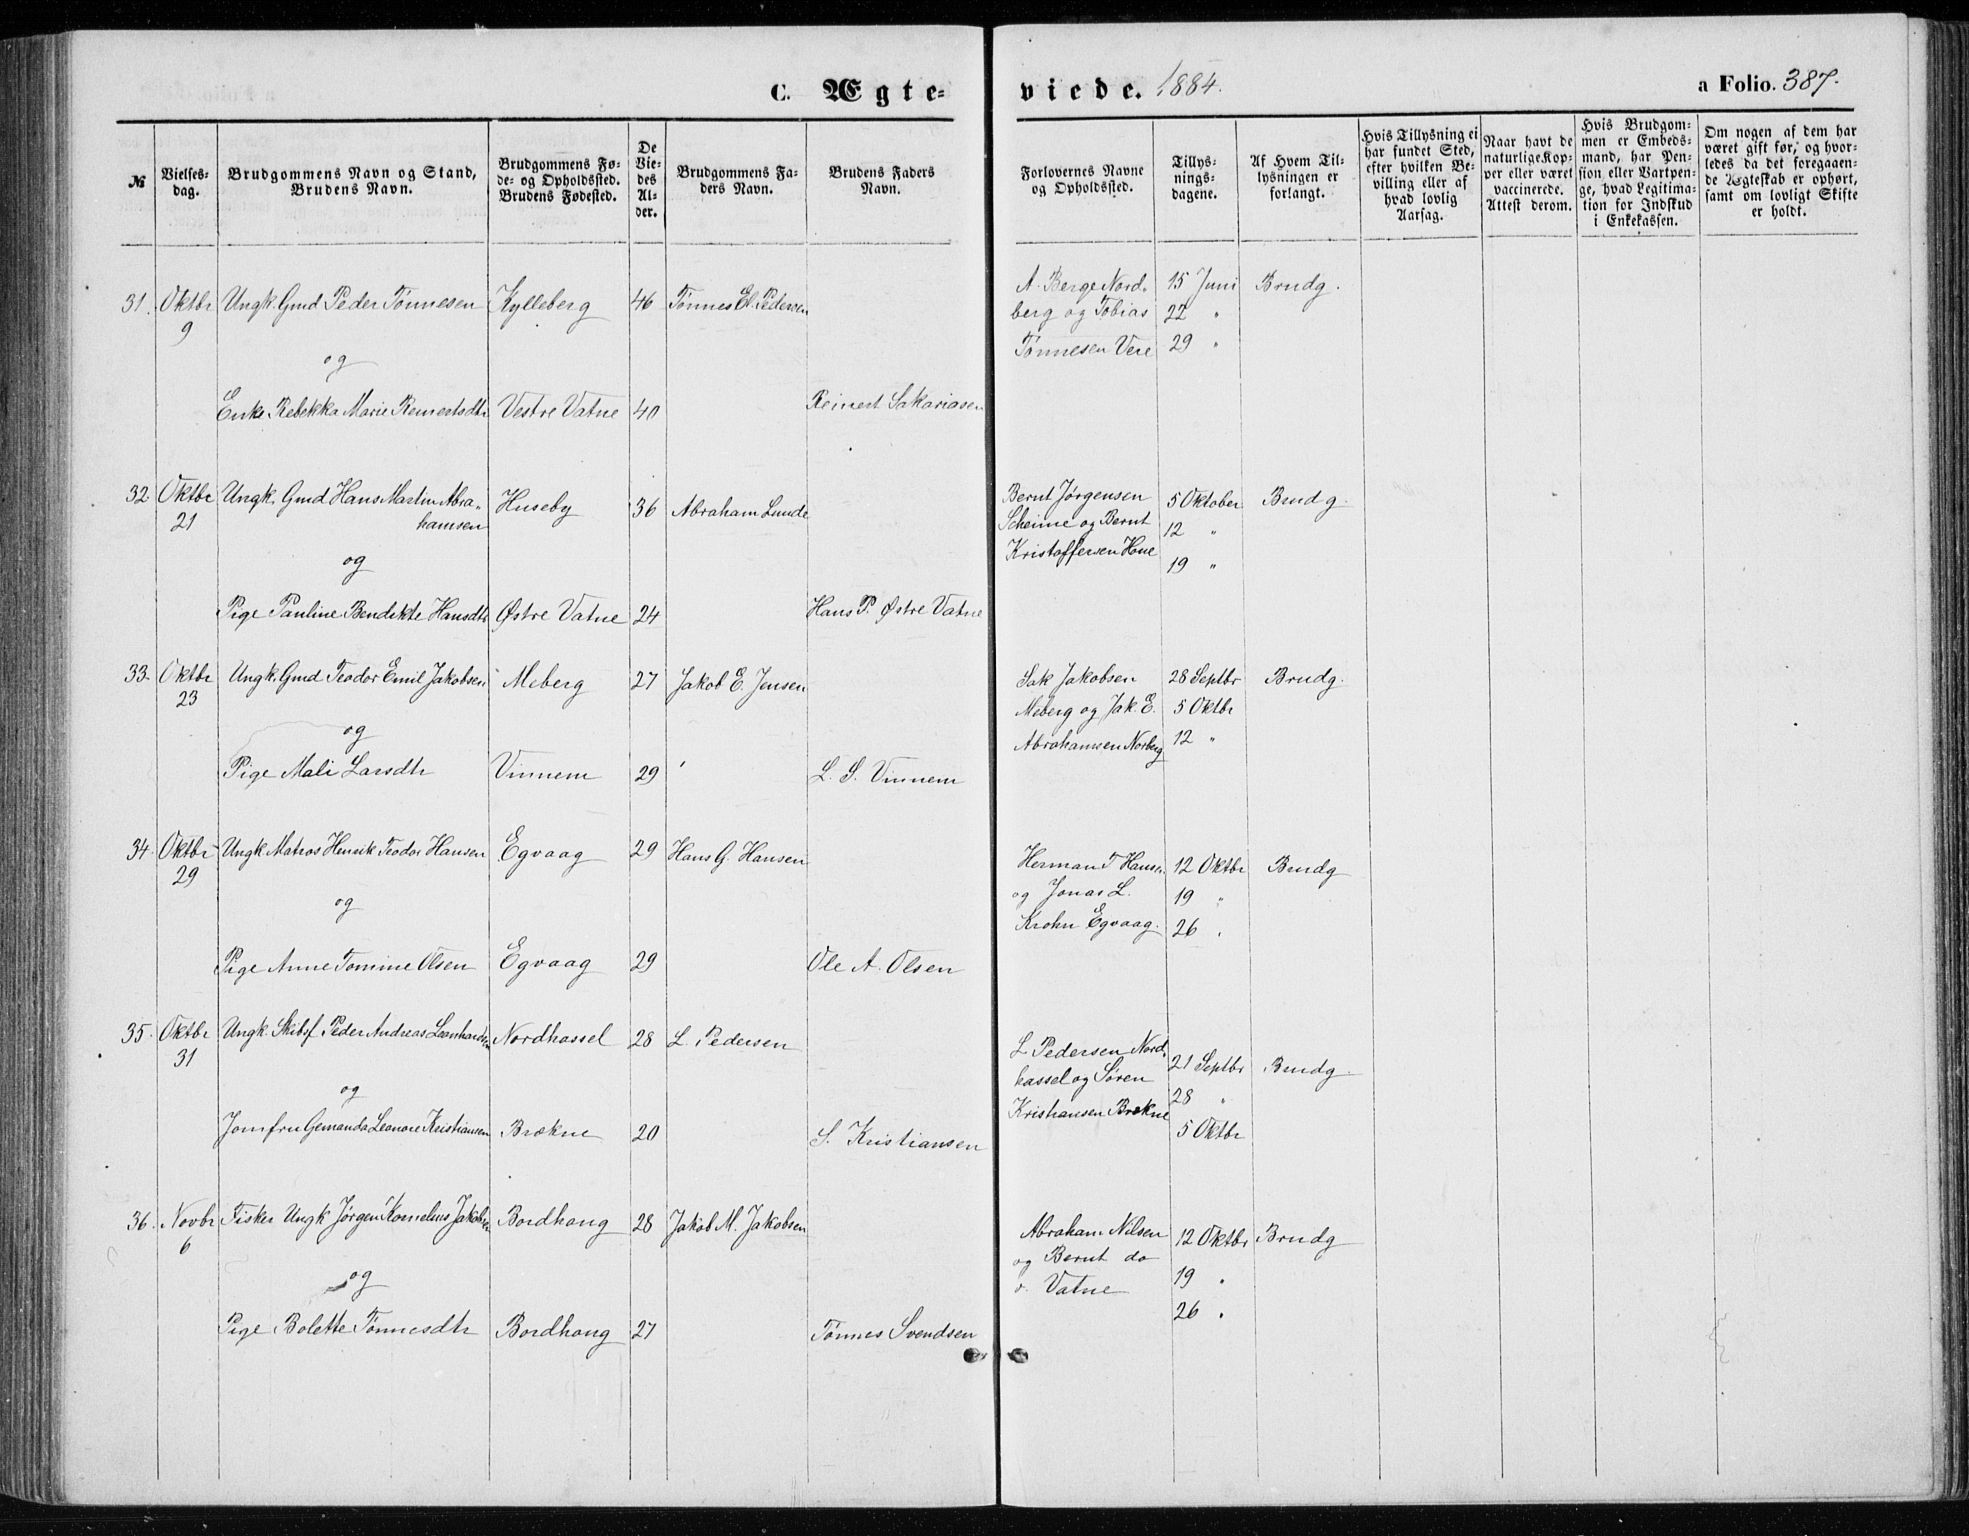 C. Ægte-
viede. 1884.
a Folio. 387.
№
Vielses-
dag.
Brudgommens Navn og Stand,
Brudens Navn.
Brudgommens Fø-
de- og Opholdssted.
Brudens Fødested.
De
Vie-
des
Al-
der.
Brudgommens Fa-
ders Navn.
Brudens Faders
Navn.
Forlovernes Navne
og Opholdssted.
Tillys-
nings-
dagene.
Af Hvem Til-
lysningen er
forlangt.
Hvis Tillysning ei
har fundet Sted,
efter hvilken Be-
villing eller af
hvad lovlig
Aarsag.
Naar havt de
naturlige Kop-
per eller været
vaccinerede.
Attest derom.
Hvis Brudgom-
men er Embeds-
mand, har Pen-
sion eller Vartpen-
ge, hvad Legitima-
tion for Indskud
i Enkekassen.
Om nogen af dem har
været gift før, og hvor-
ledes da det foregaaen-
de Ægteskab er ophørt,
samt om lovligt Skifte
er holdt.
31. Oktbr Ungk. Gmd Peder Tönnesen Kylleberg 46 Tönnes El. Pedersen A. Berge Nord- 15 Juni Brudg.
9 berg og Tobias 22 "
og Tönnesen Vere 29 "
Enke Rebekka Marie Reinertsdtr Vestre Vatne 40 Reinert Sakariasen
32. Oktbr Ungk. Gmd Hans Martin Abra- Huseby 36 Abraham Lunde Bernt Jørgensen 5 Oktober Brudg.
21 hamsen Scheime og Bernt 12 "
og Kristoffersen Haue 19 "
Pige Pauline Bendikte Hansdtr Østre Vatne 24 Hans P. Østre Vatne
33. Oktbr Ungk. Gmd Teodor Emil Jakobsen Meberg 27 Jakob E. Jensen Sak Jakobsen 28 Septbr Brudg.
23 Meberg og Jak. E. 5 Oktbr
og Abrahamsen Norberg 12 "
Pige Mali Larsdtr Vinnem 29 L. S. Vinnem
34. Oktbr Ungk. Matros Henrik Teodor Hansen Egvaag 29 Hans G. Hansen Herman T Hansen 12 Oktbr Brudg
29 og Jonas L. 19 "
og Krohn Egvaag. 26 "
Pige Anne Tomine Olsen Egvaag 29 Ole A. Olsen
35. Oktbr Ungk. Skibsf. Peder Andreas Leonhardsen Nordhassel 28 L. Pedersen L Pedersen Nord- 21 Septbr Brudg.
31 hassel og Søren 28 "
og Kristiansen Brekne 5 Oktbr
Jomfru Gemanda Leonore Kristiansen Brekne 20 S. Kristiansen
36. Novbr Fisker Ungk Jørgen Kornelius Jakobsen Bordhaug 28 Jakob M. Jakobsen Abraham Nilsen 12 Oktbr Brudg
6 og Bernt do 19 "
og v. Vatne 26 "
Pige Bolette Tönnesdtr Bordhaug 27 Tönnes Svendsen